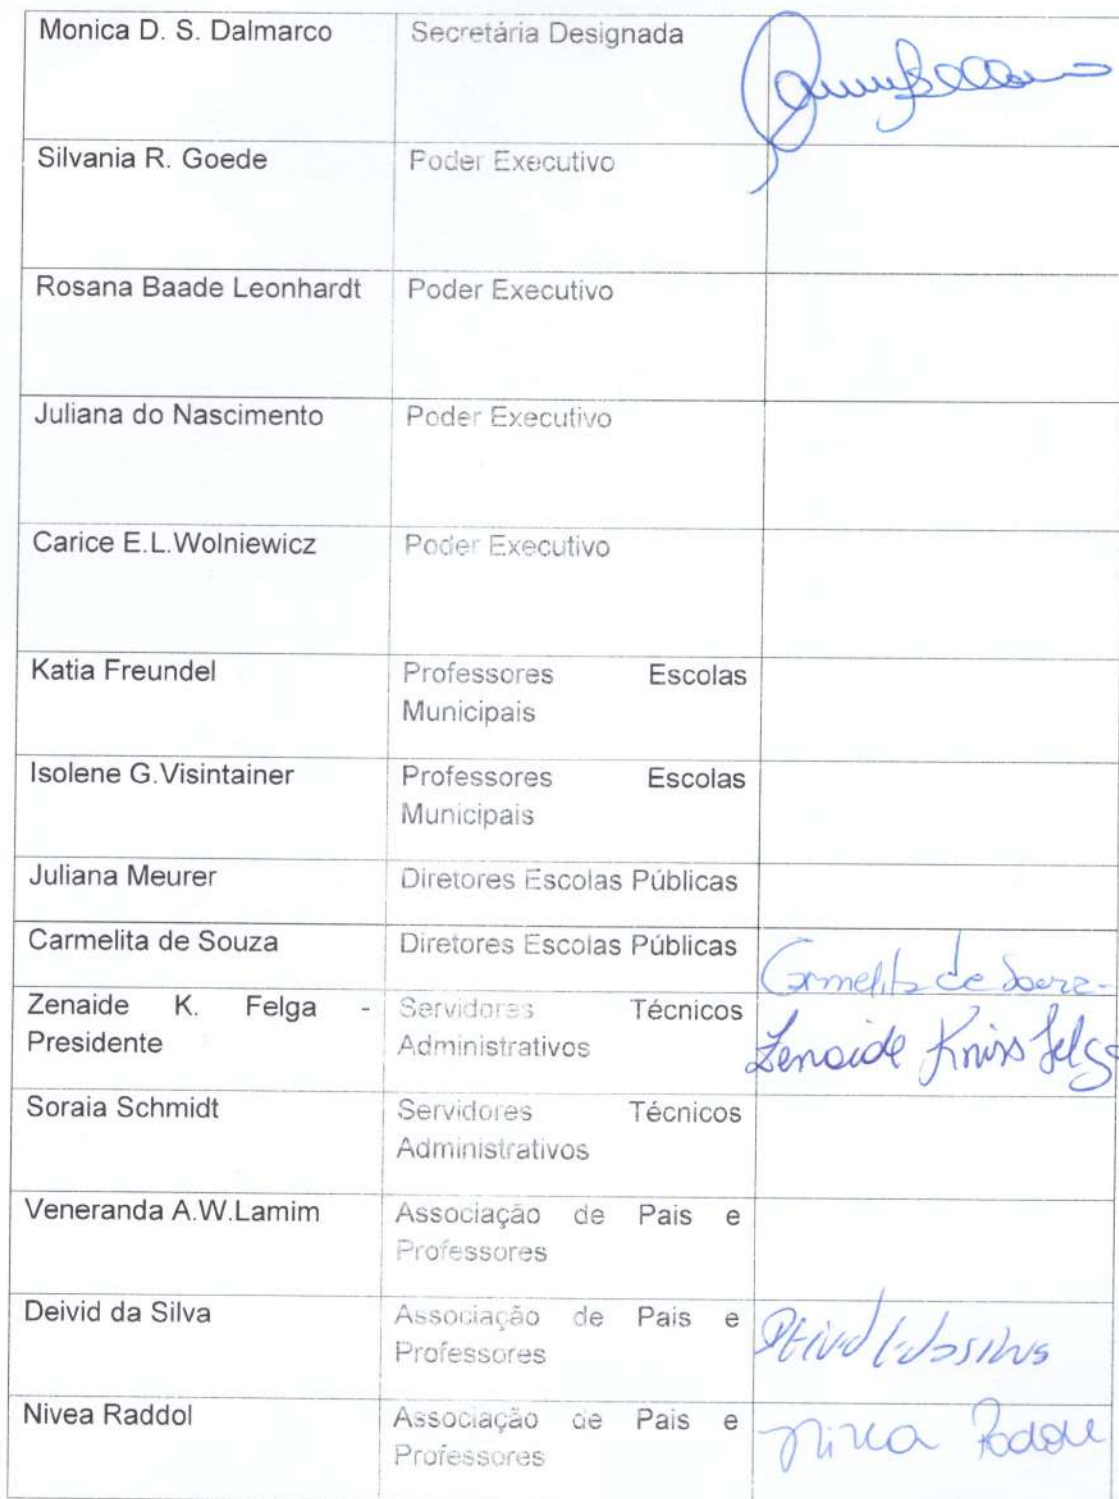 Monica D. S. Dalmarco Secretária Designada
Silvania R. Goede Poder Executivo
Rosana Baade Leonhardt Poder Executivo
Juliana do Nascimento Poder Executivo
Carice E.L.Wolniewicz Poder Executivo
Katia Freundel Professores Escolas
Municipais
Isolene G.Visintainer Professores Escolas
Municipais
Juliana Meurer Diretores Escolas Públicas
Carmelita de Souza Diretores Escolas Públicas Carmelita de Souza
Zenaide K. Felga - Servidores Técnicos Zenaide Kniss Felga
Presidente Administrativos
Soraia Schmidt Servidores Técnicos
Administrativos
Veneranda A.W.Lamim Associação de Pais e
Professores
Deivid da Silva Associação de Pais e Deivid da Silva
Professores
Nivea Raddol Associação de Pais e Nivea
Professores